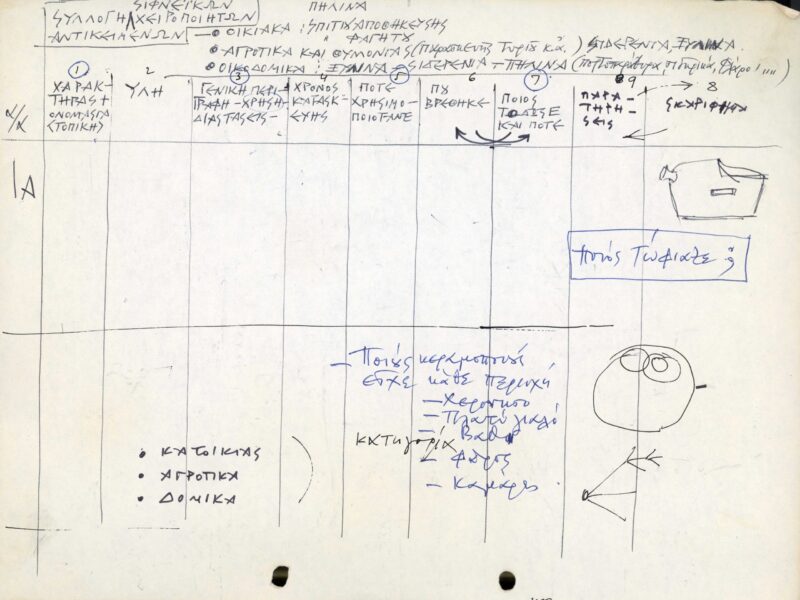 ΣΙΦΝΕΪΚΩΝ
ΣΥΛΛΟΓΗ ΧΕΙΡΟΠΟΙΗΤΩΝ
ΑΝΤΙΚΕΙΜΕΝΩΝ
ΠΗΛΙΝΑ
ΟΙΚΙΑΚΑ : ΣΠΙΤΙΟΥ ΑΠΟΘΗΚΕΥΣΗΣ
ΦΑΓΗΤΟΥ
ΑΓΡΟΤΙΚΑ ΚΑΙ ΘΥΜΩΝΙΑΣ (Παρασκευής Τυριού κ.ά.) ΣΙΔΕΡΕΝΙΑ, ΞΥΛΙΝΑ
ΟΙΚΟΔΟΜΙΚΑ : ΞΥΛΙΝΑ - ΣΙΔΕΡΕΝΙΑ - ΠΗΛΙΝΑ
1 2 3 4 5 6 7 9 8
α/α
ΧΑΡΑΚ-
ΤΗΡΑΣ +
ΟΝΟΜΑΣΙΑ
ΤΟΠΙΚΗΣ
ΥΛΗ
ΓΕΝΙΚΗ ΠΕΡΙ-
ΓΡΑΦΗ - ΧΡΗΣΗ-
ΔΙΑΣΤΑΣΕΙΣ -
ΧΡΟΝΟΣ
ΚΑΤΑΣΚ-
ΕΥΗΣ
ΠΟΤΕ
ΧΡΗΣΙΜΟ-
ΠΟΙΟΤΑΝΕ
ΠΟΥ
ΒΡΕΘΗΚΕ
ΠΟΙΟΣ
ΤΟ ΔΩΣΕ
ΚΑΙ ΠΟΤΕ
ΠΑΡΑ-
ΤΗΡΗ-
ΣΕΙΣ
ΣΚΑΡΙΦΗΜΑ
1Α
Ποιός Τώφιαξε ;
- Ποιούς κεραμοποιούς
είχε κάθε Περιοχή
- Χερσόνησο
- Πλατύ γιαλό
- Βαθύ
κατηγορία
- Φάρος
- Καμάρες
• ΚΑΤΟΙΚΙΑΣ
• ΑΓΡΟΤΙΚΑ
• ΔΟΜΙΚΑ